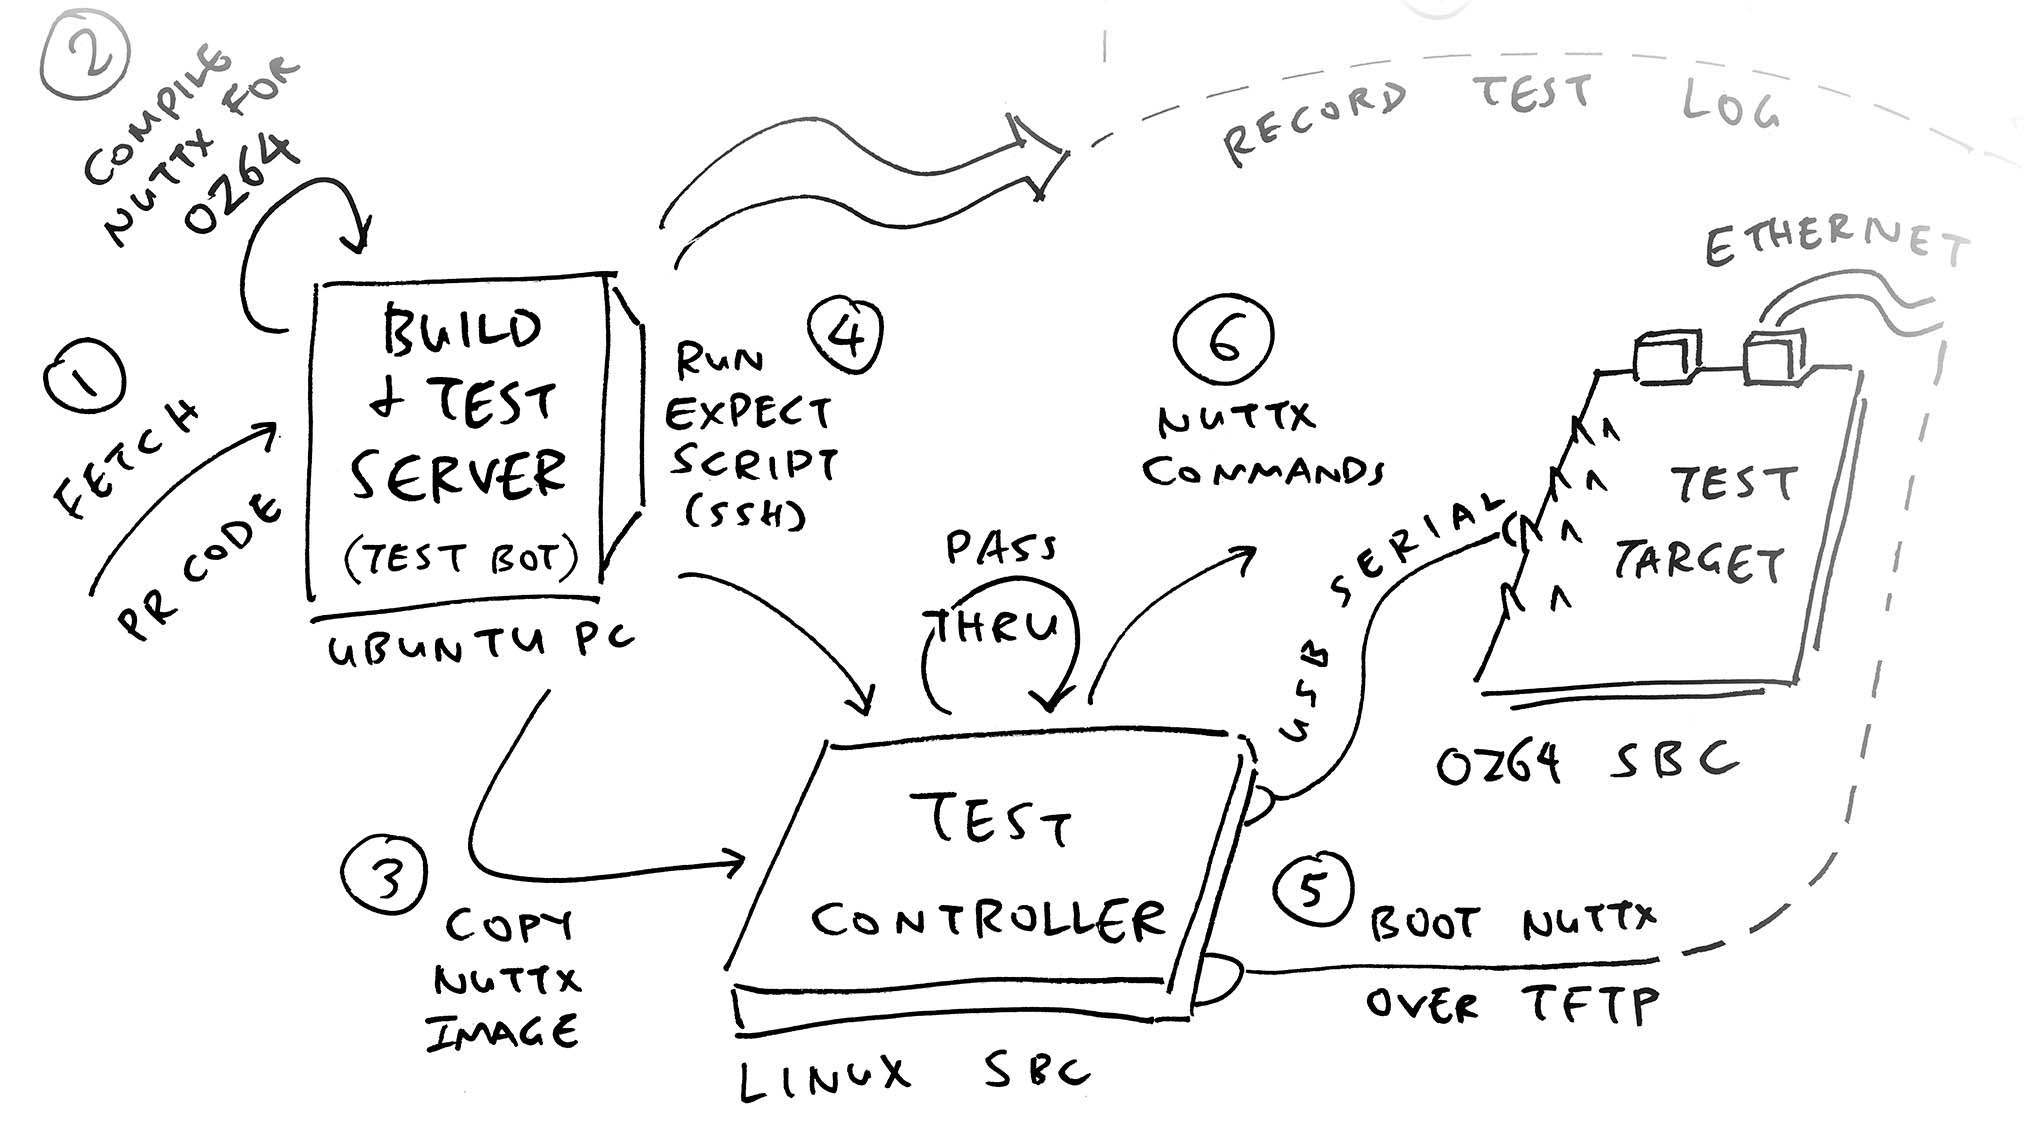 2
COMPILE
NUTTX FOR
OZ64
1
FETCH
PR CODE
BUILD
& TEST
SERVER
(TEST BOT)
UBUNTU PC
RECORD TEST LOG
4
RUN
EXPECT
SCRIPT
(SSH)
3
COPY
NUTTX
IMAGE
PASS
THRU
TEST
CONTROLLER
LINUX SBC
6
NUTTX
COMMANDS
USB SERIAL
ETHERNET
TEST
TARGET
OZ64 SBC
5
BOOT NUTTX
OVER TFTP